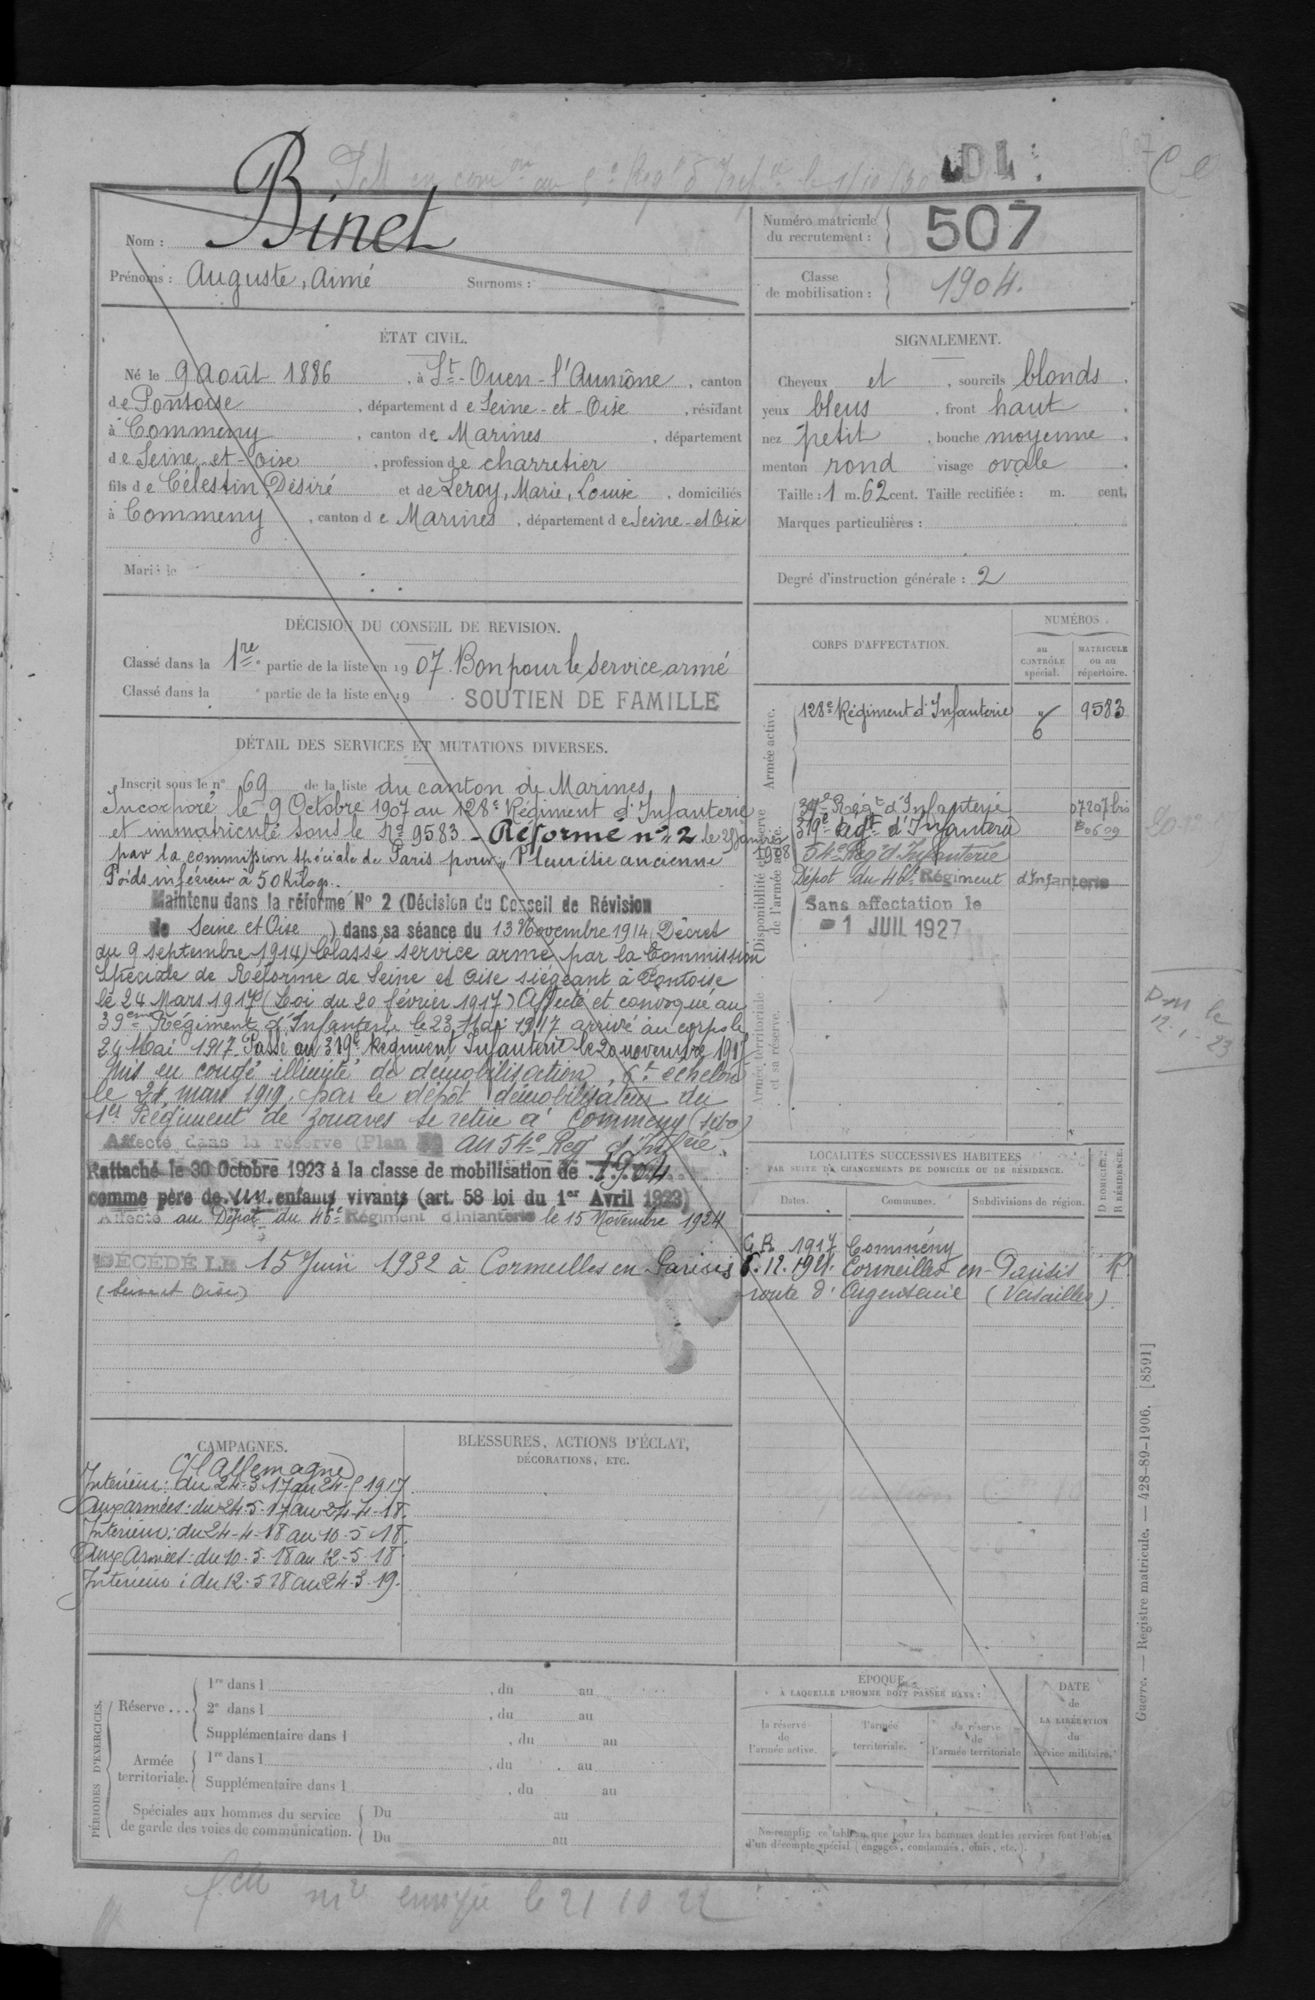 Nom : Binet
Prénoms : Auguste, Aimé Surnoms :
Numéro matricule
du recrutement : 507
Classe
de mobilisation : 1904.
ÉTAT CIVIL.
Né le 9 Août 1886, à St-Ouen-l'Aumône, canton
de Pontoise, département de Seine-et-Oise, résidant
à Commeny, canton de Marines, département
de Seine-et-Oise, profession de charretier
fils de Célestin Désiré et de Leroy, Marie, Louise, domiciliés
à Commeny, canton de Marines, département de Seine-et-Oise
Marié le
SIGNALEMENT.
Cheveux et, sourcils blonds.
yeux bleus, front haut.
nez petit, bouche moyenne.
menton rond visage ovale.
Taille : 1 m. 62 cent. Taille rectifiée : m. cent.
Marques particulières :
Degré d'instruction générale : 2
DÉCISION DU CONSEIL DE REVISION.
Classé dans la 1re partie de la liste en 1907. Bon pour le service armé
Classé dans la e partie de la liste en 19 . SOUTIEN DE FAMILLE
DÉTAIL DES SERVICES ET MUTATIONS DIVERSES.
Inscrit sous le n° 69 de la liste du canton de Marines
Incorporé le 9 Octobre 1907 au 128e Régiment d'Infanterie
et immatriculé sous le No 9583 - Réformé n° 2 le 1908
par la commission spéciale de Paris pour "Pleurésie ancienne
Poids inférieur à 50 Kilogs.
Maintenu dans la réforme N° 2 (Décision du Conseil de Révision
de Seine et Oise) dans sa séance du 13 Novembre 1914 (Décret
du 9 septembre 1914) Classé service armé par la Commission
Spéciale de Réforme de Seine et Oise siégeant à Pontoise
le 24 Mars 1917 (Loi du 20 février 1917) Affecté et convoqué au
39ème Régiment d'Infanterie le 23 Mai 1917 arrivé au corps le
24 Mai 1917. Passé au 319e Régiment Infanterie le 20 novembre 1917
Mis en congé illimité de démobilisation, 6e échelon
le 24 mars 1919, par le dépôt démobilisateur du
1er Régiment de Zouaves se retire à Commeny (S&O)
Affecté dans la réserve (Plan au 54e Reg d'Infrie.
Rattaché le 30 Octobre 1923 à la classe de mobilisation de 1904
comme père de un enfants vivants (art. 58 loi du 1er Avril 1923)
Affecté au Dépôt du 46e Régiment d'Infanterie le 15 Novembre 1924
DÉCÉDÉ LE 15 Juin 1932 à Cormeilles en Parisis
(Seine et Oise)
CORPS D'AFFECTATION.
NUMÉROS
au
CONTRÔLE
spécial.
MATRICULE
ou au
répertoire.
Armée active.
128e Régiment d'Infanterie 9583
Disponibilité et réserve
de l'armée active.
39e Régt d'Infanterie 07207 bis
319e Rgt d'Infanterie
54e Reg d'Infanterie
Dépot du 46e Régiment d'Infanterie
Sans affectation le
1 JUIL 1927
Armée territoriale
et sa réserve.
LOCALITÉS SUCCESSIVES HABITÉES
PAR SUITE DE CHANGEMENTS DE DOMICILE OU DE RÉSIDENCE.
Dates. Communes. Subdivisions de région. D DOMICILE. R RÉSIDENCE.
G.R. 1917 Commény
12. 1921. Cormeilles-en-Parisis R
route d'Argenteuil (Versailles)
CAMPAGNES.
(C/ Allemagne)
Intérieur : du 24-3-17 au 24-5-1917
Aux armées : du 24-5-17 au 24-4-18.
Intérieur : du 24-4-18 au 10-5-18.
Aux Armées : du 10-5-18 au 12-5-18.
Intérieur : du 12-5-18 au 24-3-19.
BLESSURES, ACTIONS D'ÉCLAT,
DÉCORATIONS, ETC.
PÉRIODES D'EXERCICES.
Réserve ...
1re dans l , du au
2e dans l , du au
Supplémentaire dans l , du au
Armée
territoriale.
1re dans l , du au
Supplémentaire dans l , du au
Spéciales aux hommes du service
de garde des voies de communication.
Du au
Du au
ÉPOQUE
À LAQUELLE L'HOMME DOIT PASSER DANS :
la réserve
de
l'armée active.
l'armée
territoriale.
la réserve
de
l'armée territoriale
DATE
de
LA LIBÉRATION
du
service militaire.
Ne remplir ce tableau que pour les hommes dont les services font l'objet
d'un décompte spécial (engagés, condamnés, omis, etc.).
Guerre. — Registre matricule. — 428-89-1906. [8591]
envoyée le 21 10 22